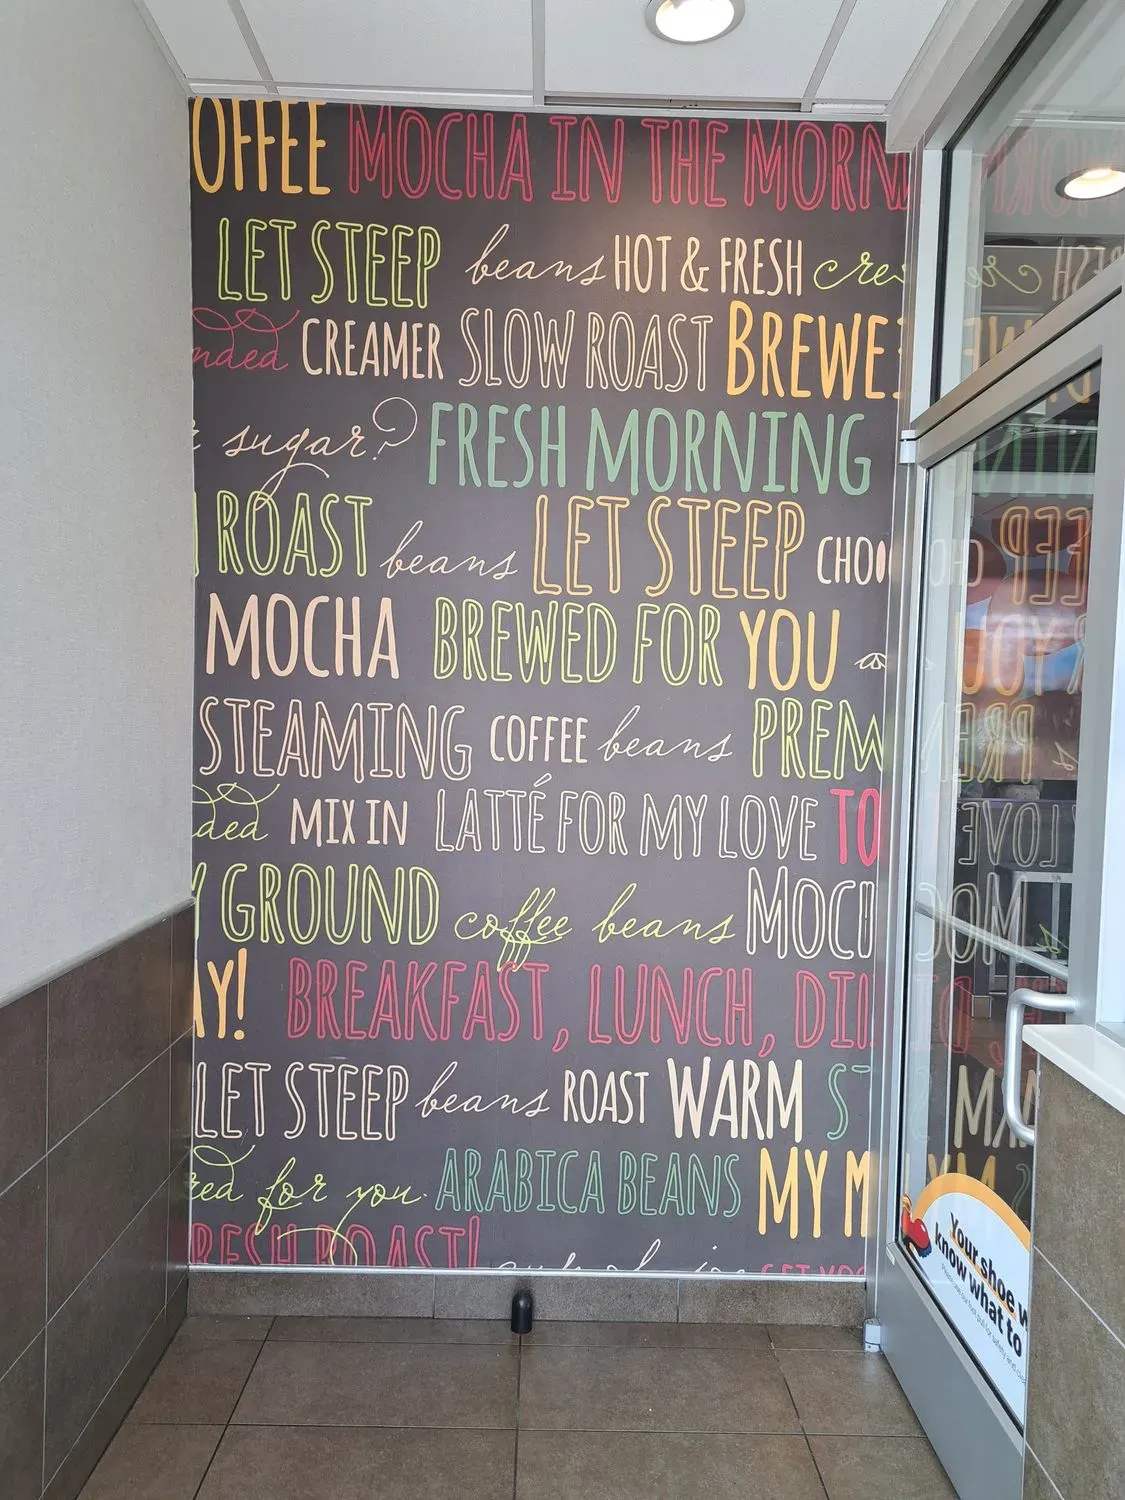 OFFEE MOCHA IN THE MORN
LET STEEP beans HOT & FRESH cre
nded CREAMER SLOW ROAST BREWE
sugar? FRESH MORNING
ROAST beans LET STEEP CHO
MOCHA BREWED FOR YOU
STEAMING COFFEE beans PREM
ded MIX IN LATTÉ FOR MY LOVE TO
Y GROUND coffee beans MOCH
AY! BREAKFAST, LUNCH, DIN
LET STEEP beans ROAST WARM ST
red for you ARABICA BEANS MY M
RESH ROAST! GET YO
Your shoe w
know what to